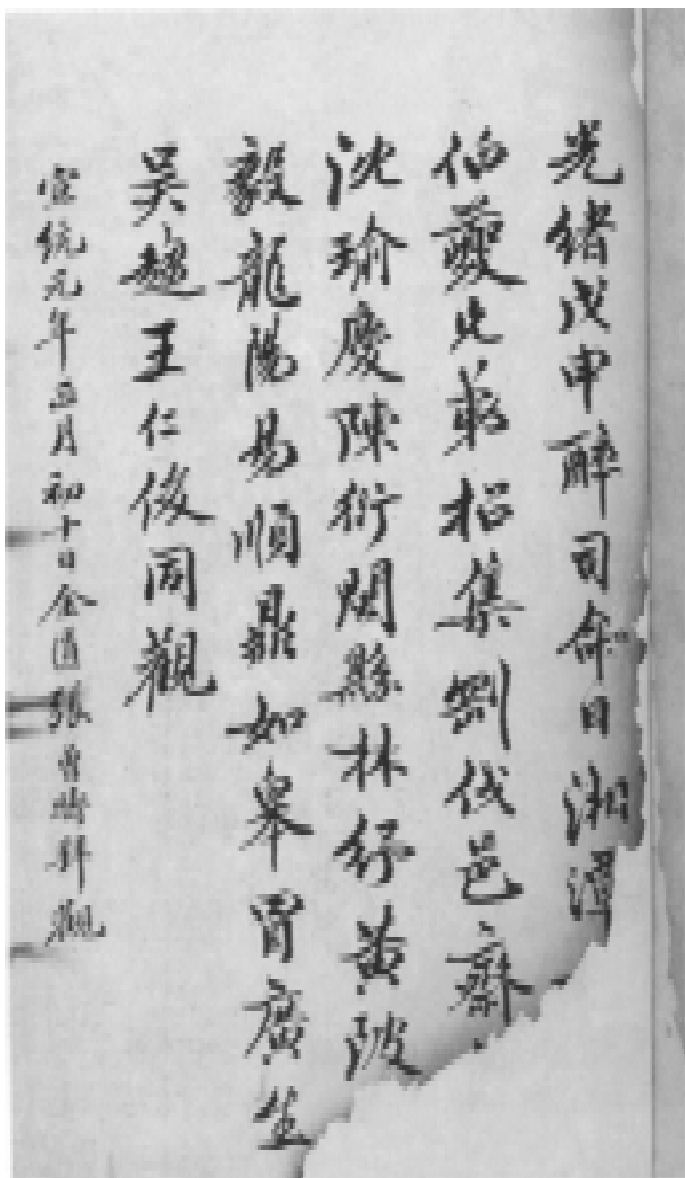 光緒戊申醉司命日湘潭
伯夔比部招集剛伐邑齋
沈瑜慶陳衍閩縣林紓黃陂
毅龍陽易順鼎如皋冒廣生
吳趨王仁俊同觀
宣統元年正月初十日金匱張曾疇拜觀